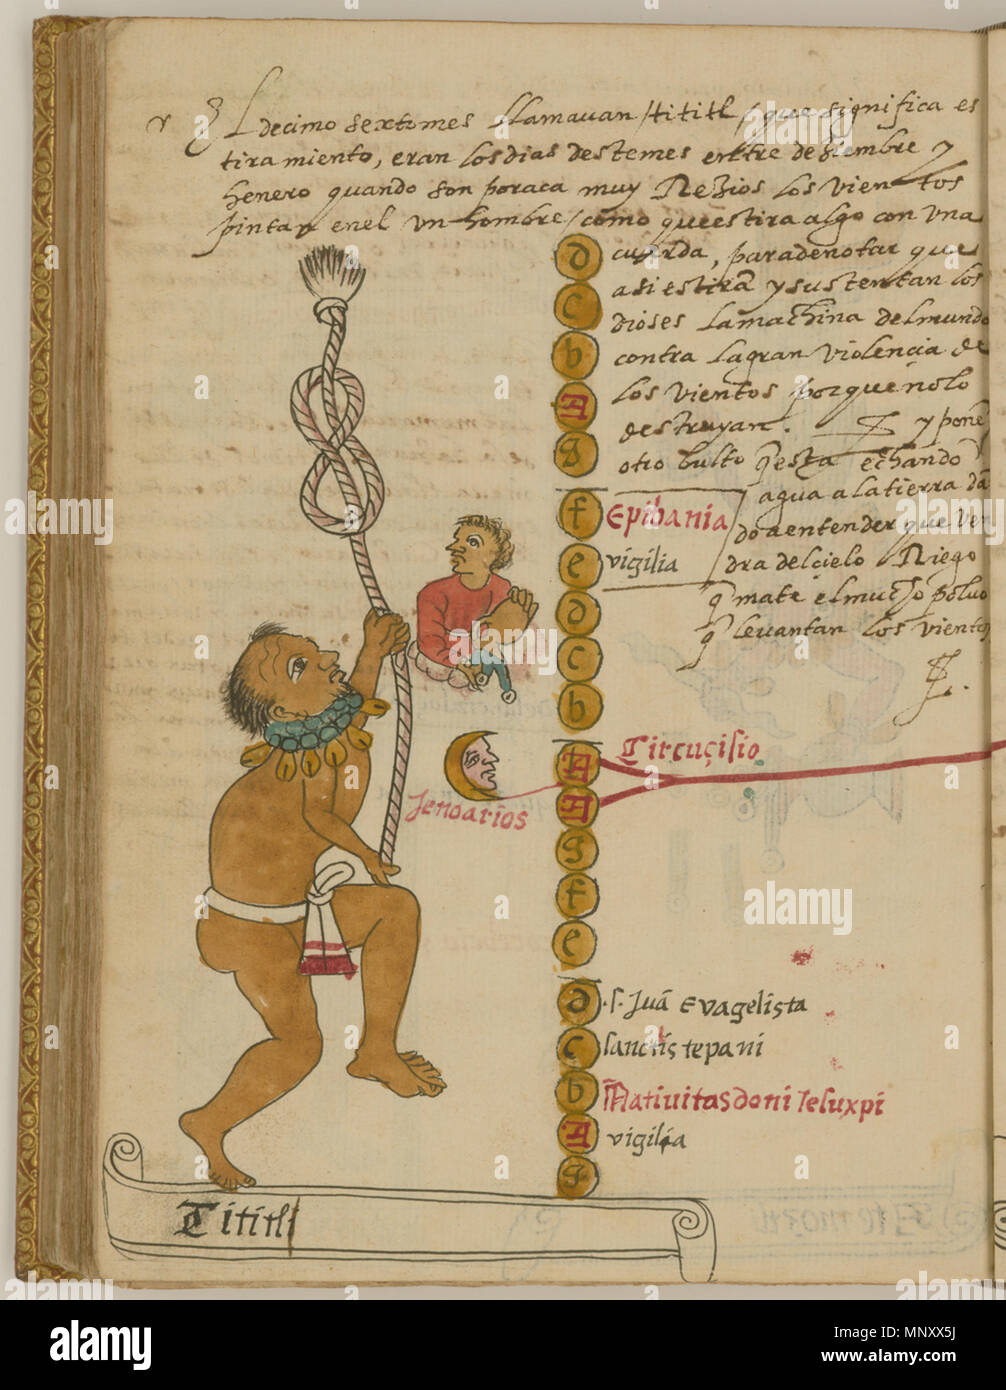 El decimo sextomes llamauan /tititl/ que significa es
tira miento, eran los dias destemes entre deziembre y
henero quando son poraca muy Rezios los vientos
pintan enel vn hombre/ como queestira algo con vna
cuerda, paradenotar que
asi estirã y sustentan los
dioses lamachina delmundo
contra lagran violencia de
los vientos porque nolo
destruyan. y ponẽ
otro bulto q̃ esta echando
agua alatierra dã
do aentender que ven
dra delcielo Riego
q̃ mate elmucho poluo
q̃ leuantan los vientos
d
c
b
A
g
f Epibania
e vigilia
d
c
b
A Circuçisio
A
Jenoarios
g
f
e
d .s. Juã Evagelista
c sanctis tepani
b Natiuitas doni Jesuxpi
A vigilia
g
Tititl
alamy
www.alamy.com
Image ID: MNXX5J